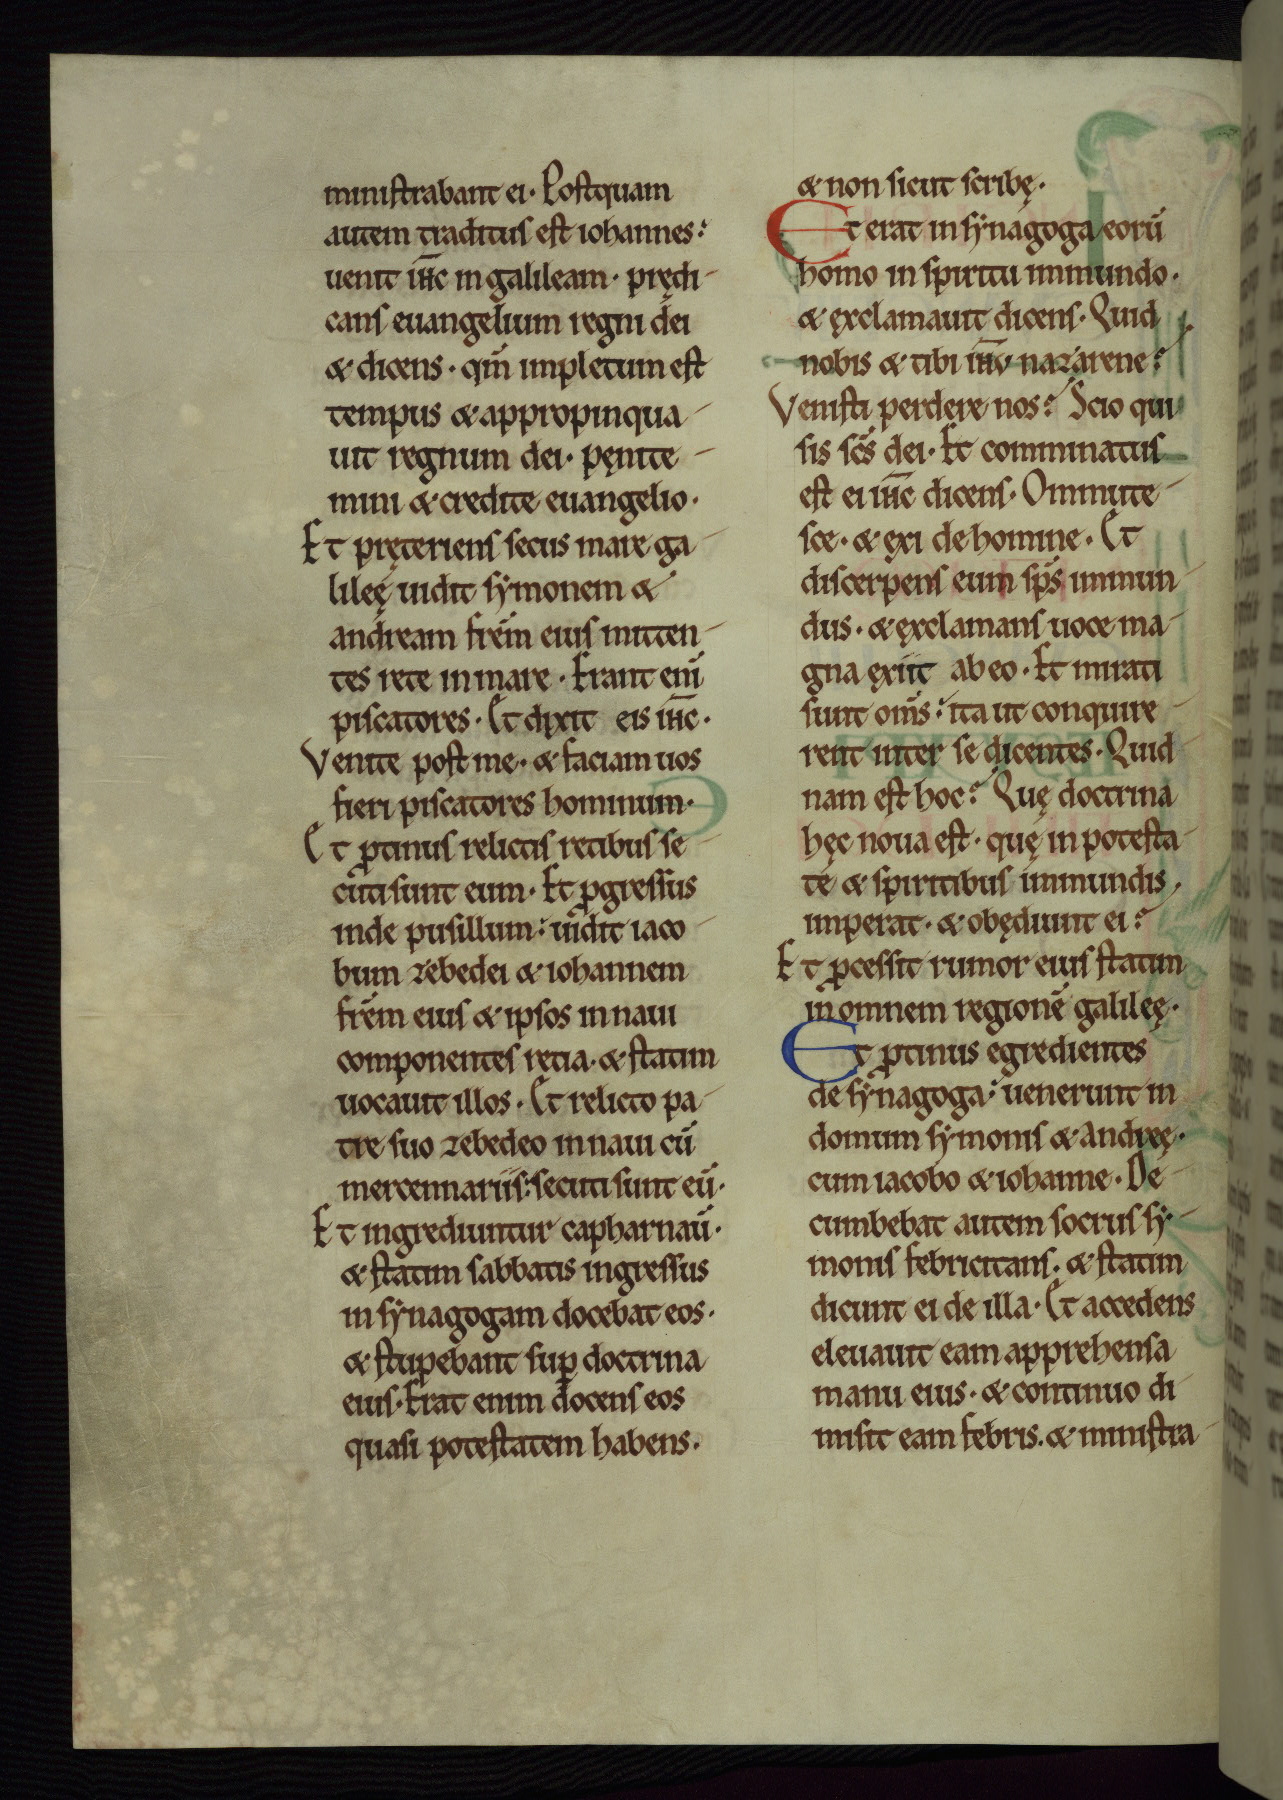 ministrabant ei. Postquam
autem traditus est iohannes:
uenit ih̅c in galileam. prędi-
cans euangelium regni dei
& dicens. qm̅ impletum est
tempus & appropinqua-
uit regnum dei. pęnite-
mini & credite euangelio.
Et pręteriens secus mare ga-
lileę uidit symonem &
andream frem̅ eius mitten-
tes rete in mare. Erant eni̅
piscatores. Et dixit eis ih̅c.
Venite post me. & faciam uos
fieri piscatores hominum.
Et ꝓtinus relictis retibus se-
cuti sunt eum. Et ꝓgressus
inde pusillum: uidit iaco-
bum zebedei & iohannem
frem̅ eius & ipsos in naui
componentes retia. & statim
uocauit illos. Et relicto pa-
tre suo zebedeo in naui cu̅
mercennariis: secuti sunt eu̅.
Et ingrediuntur capharnau̅.
& statim sabbatis ingressus
in synagogam docebat eos.
& stupebant suꝑ doctrina
eius. Erat enim docens eos
quasi potestatem habens.
& non sicut scribę.
Et erat in synagoga eoru̅
homo in spiritu immundo.
& exclamauit dicens. Quid
nobis & tibi ih̅u nazarene?
Venisti perdere nos? Scio qui
sis sc̅s dei. Et comminatus
est ei ih̅c dicens. Ommute-
sce. & exi de homine. Et
discerpens eum sps̅ immun-
dus. & exclamans uoce ma-
gna exiit ab eo. Et mirati
sunt om̅s: ita ut conquire-
rent inter se dicentes. Quid-
nam est hoc? Quę doctrina
hęc noua est. quę in potesta-
te & spiritibus immundis
imperat. & obędiunt ei?
Et ꝓcessit rumor eius statim
in omnem regione̅ galileę.
Et ꝓtinus egredientes
de synagoga: uenerunt in
domum symonis & andreę.
cum iacobo & iohanne. De-
cumbebat autem socrus sy-
monis febricitans. & statim
dicunt ei de illa. Et accedens
eleuauit eam apprehensa
manu eius. & continuo di-
misit eam febris. & ministra-